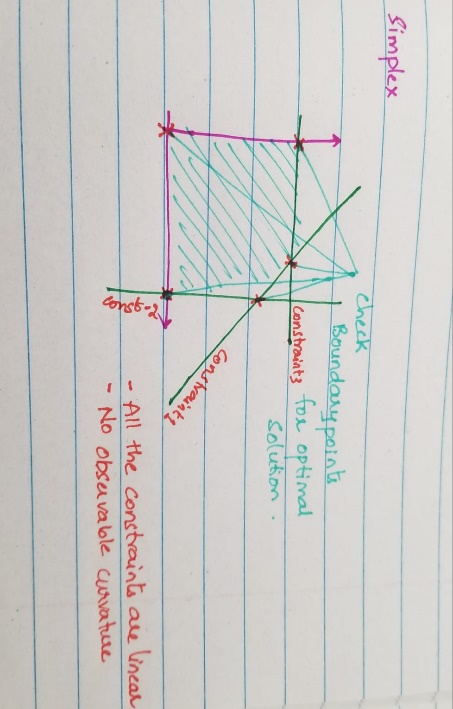 Simplex
Check
Boundary points
for optimal
solution.
constraints
constraints
const-2
- All the constraints are linear
- No observable curvature